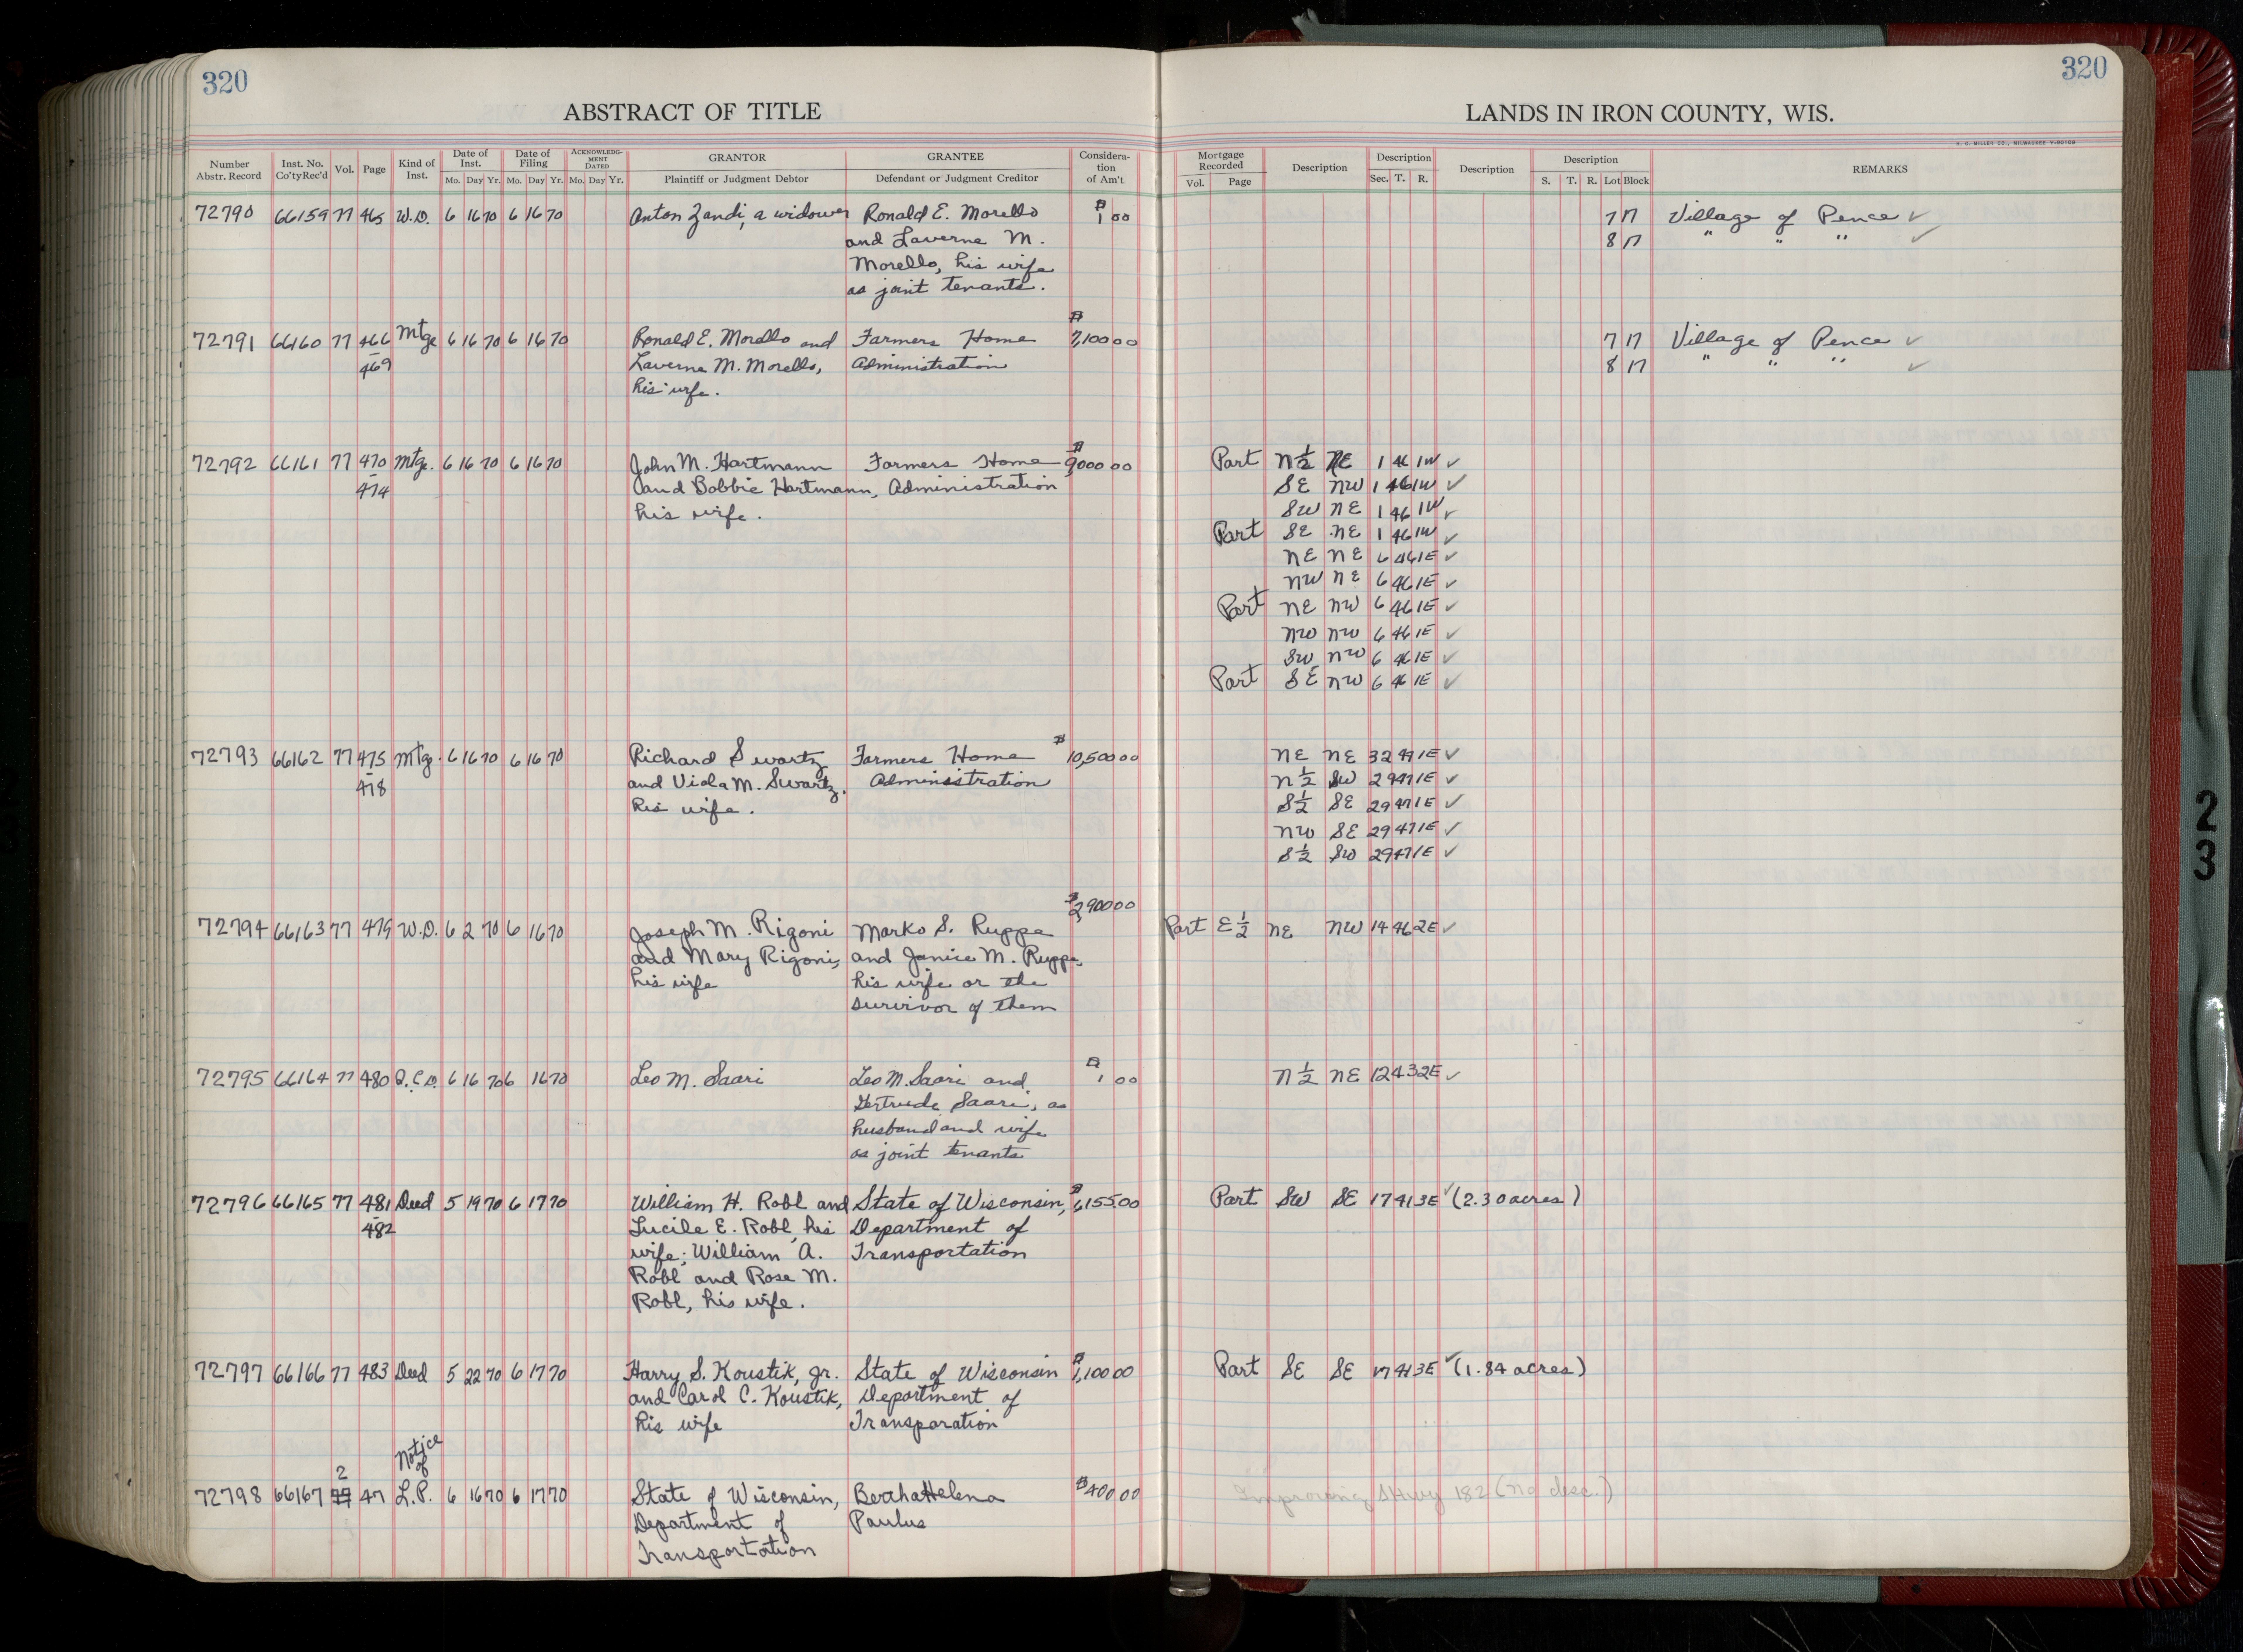 320
320
ABSTRACT OF TITLE
LANDS IN IRON COUNTY, WIS.
H. C. MILLER CO., MILWAUKEE
Number Abstr. Record | Inst. No. Co'ty Rec'd | Vol. | Page | Kind of Inst. | Date of Inst. Mo. Day Yr. | Date of Filing Mo. Day Yr. | ACKNOWLEDGMENT DATED Mo. Day Yr. | GRANTOR Plaintiff or Judgment Debtor | GRANTEE Defendant or Judgment Creditor | Consideration of Am't | Mortgage Recorded Vol. Page | Description | Description Sec. T. R. | Description | Description S. T. R. Lot Block | REMARKS
72790 66159 77 465 W.D. 6 16 70 6 16 70 Anton Zandi, a widower Ronald E. Morello $1 00 7 17 Village of Pence ✓
and Laverne M. 8 17 " " " ✓
Morello, his wife
as joint tenants.
72791 66160 77 466 Mtge 6 16 70 6 16 70 Ronald E. Morello and Farmers Home $7,100 00 7 17 Village of Pence ✓
- 469 Laverne M. Morello, Administration 8 17 " " " ✓
his wife.
72792 66161 77 470 Mtge. 6 16 70 6 16 70 John M. Hartmann Farmers Home $9,000 00 Part N½ NE 1 46 1W ✓
- 474 and Bobbie Hartmann, Administration SE NW 1 46 1W ✓
his wife. SW NE 1 46 1W ✓
Part SE NE 1 46 1W ✓
NE NE 6 46 1E ✓
NW NE 6 46 1E ✓
Part NE NW 6 46 1E ✓
NW NW 6 46 1E ✓
SW NW 6 46 1E ✓
Part SE NW 6 46 1E ✓
72793 66162 77 475 Mtg. 6 16 70 6 16 70 Richard Swartz Farmers Home $10,500 00 NE NE 32 47 1E ✓
- 478 and Viola M. Swartz, Administration N½ SW 29 47 1E ✓
his wife. S½ SE 29 47 1E ✓
NW SE 29 47 1E ✓
S½ SW 29 47 1E ✓
$2,900 00
72794 66163 77 479 W.D. 6 2 70 6 16 70 Joseph M. Rigoni Marko S. Ruppe Part E½ NE NW 14 46 2E ✓
and Mary Rigoni, and Janice M. Ruppe,
his wife his wife or the
survivor of them
72795 66164 77 480 Q.C.D. 6 16 70 6 16 70 Leo M. Saari Leo M. Saari and $1 00 N½ NE 12 43 2E ✓
Gertrude Saari, as
husband and wife
as joint tenants
72796 66165 77 481 Deed 5 19 70 6 17 70 William H. Robl and State of Wisconsin, $6,155.00 Part SW SE 17 41 3E ✓ (2.30 acres)
- 482 Lucile E. Robl, his Department of
wife; William A. Transportation
Robl and Rose M.
Robl, his wife.
72797 66166 77 483 Deed 5 22 70 6 17 70 Harry S. Koustik, Jr. State of Wisconsin $1,100 00 Part SE SE 17 41 3E ✓ (1.84 acres)
and Carol C. Koustik, Department of
his wife Transporation
Notice
2 of
72798 66167 47 L.P. 6 16 70 6 17 70 State of Wisconsin, Bertha Helena $400 00 Improving SHwy 182 (no desc.)
Department of Paulus
Transportation
23